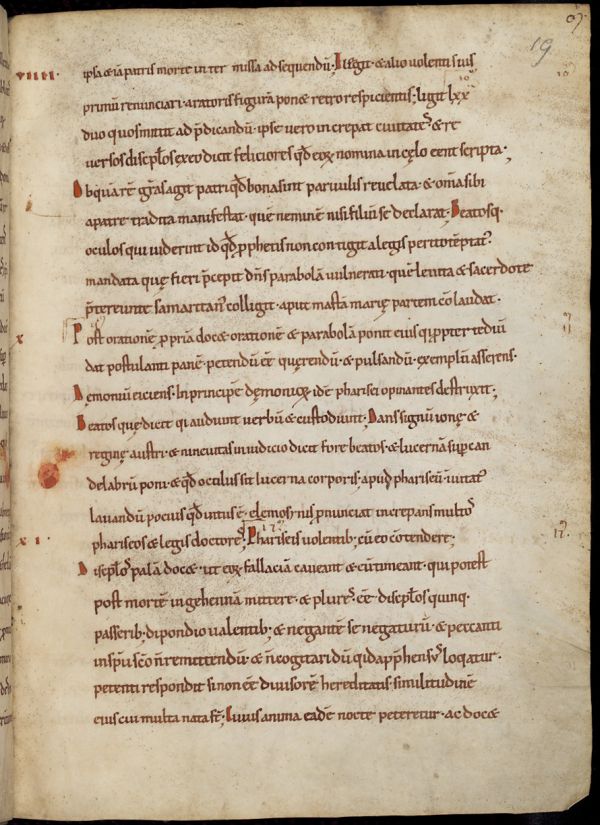 19
viiii.
ipsa & iā patris morte inter missa ad sequendū. Illegit & alio volenti suis
primū renunciari. aratoris figurā ponæ retro respicientis; ligit lxx
duo quos mittit ad p̄dicandū. ipse vero increpat civitates & re
versos discip̄los exeo dicit feliciores qd̄ eoꝝ nomina in cęlo eent scripta.
Ob quā rē gr̄as agit patri qd̄ bona sint parvulis revelata. & om̄ia sibi
a patre tradita manifestat. quē neminē nisi filiū se declarat. Beatosq.
oculos qui viderint id qd̄ p̄phetis non contigit a legis perito
mandata quę fieri p̄cepit dn̄s parabolā vulnerati. quē levita & sacerdote
p̄tereunte samaritan' colligit. aput martā marię partem conlaudat.
x
Post orationē ꝓpriā docæ orationē & parabolā ponit eius qui ꝓpter tediū
dat postulanti panē. petendū ēē quęrendū. & pulsandū. exemplū asserens.
Demoniū eiciens. In principe dęmonioꝝ idē pharisei opinantes destruxit;
Beatos quę dicit qi audiunt verbū & custodiunt; Dans signū ionę &
reginę austri. & ninevitas in iudicio dicit fore beatos. & lucernā sup can
delabrū poni. & qd̄ oculus sit lucerna corporis. apud phariseū invitat'
lavandū pocius qd̄ intus ē. elemosynis pnunciat increpans multos
xi.
phariseos & legis doctores; Phariseis volentib; cū eo cōtendere;
12
Discip̄los palā docæ. ut eoꝝ fallaciam caveant & eū timeant. qui potest
post mortē in gehennā mittere. & plures ēē discip̄los quinq.
passerib; dipondio valentib; & negantē se negaturū. & peccanti
in sp̄m sc̄o n̄ remittendū. & n̄ cogitari dū qid apphensus loqatur.
petenti respondit si non ēē divisorē hereditatis. similitudinē
eius cui multa nata st̄. huius anima eadē nocte peteretur. ac docæ